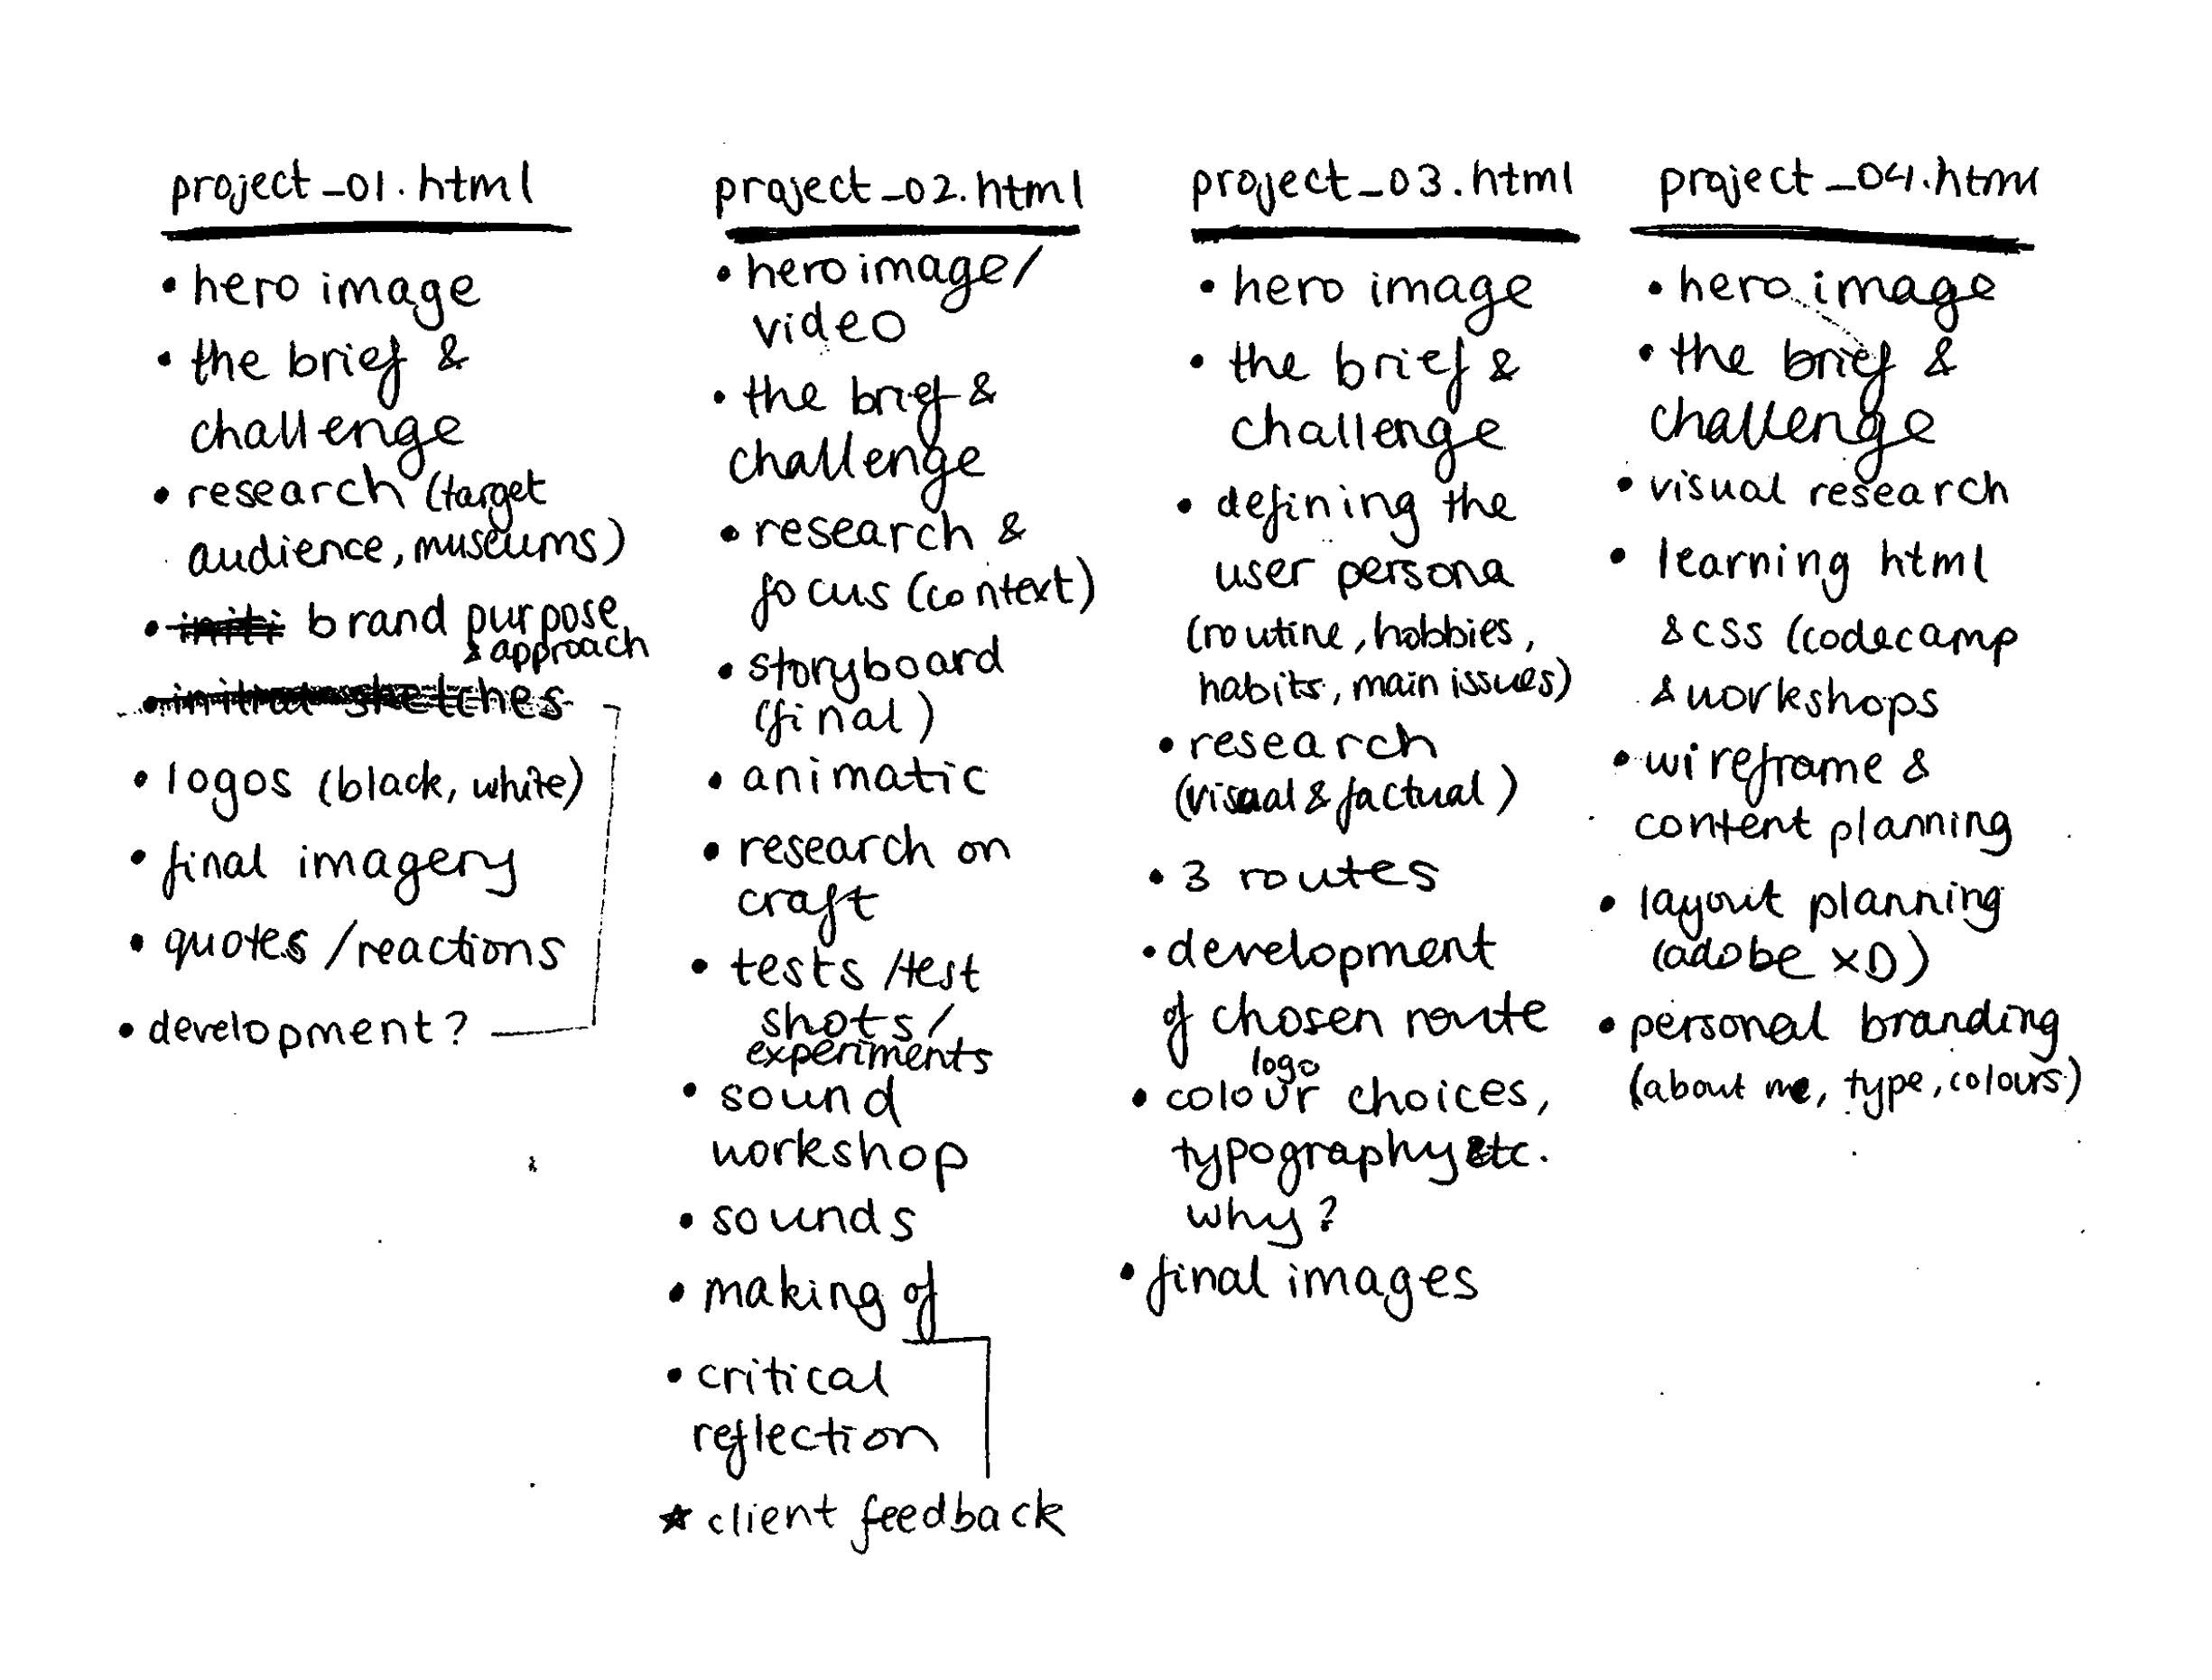 project_01.html
• hero image
• the brief &
challenge
• research (target
audience, museums)
• initi brand purpose
& approach
• initial sketches
• logos (black, white)
• final imagery
• quotes / reactions
• development?
project_02.html
• hero image /
video
• the brief &
challenge
• research &
focus (context)
• storyboard
(final)
• animatic
• research on
craft
• tests / test
shots /
experiments
• sound
workshop
• sounds
• making of
• critical
reflection
★ client feedback
project_03.html
• hero image
• the brief &
challenge
• defining the
user persona
(routine, hobbies,
habits, main issues)
• research
(visual & factual)
• 3 routes
• development
of chosen route
logo
• colour choices,
typography etc.
why?
• final images
project_04.html
• hero image
• the brief &
challenge
• visual research
• learning html
& css (codecamp
& workshops
• wireframe &
content planning
• layout planning
(adobe XD)
• personal branding
(about me, type, colours)